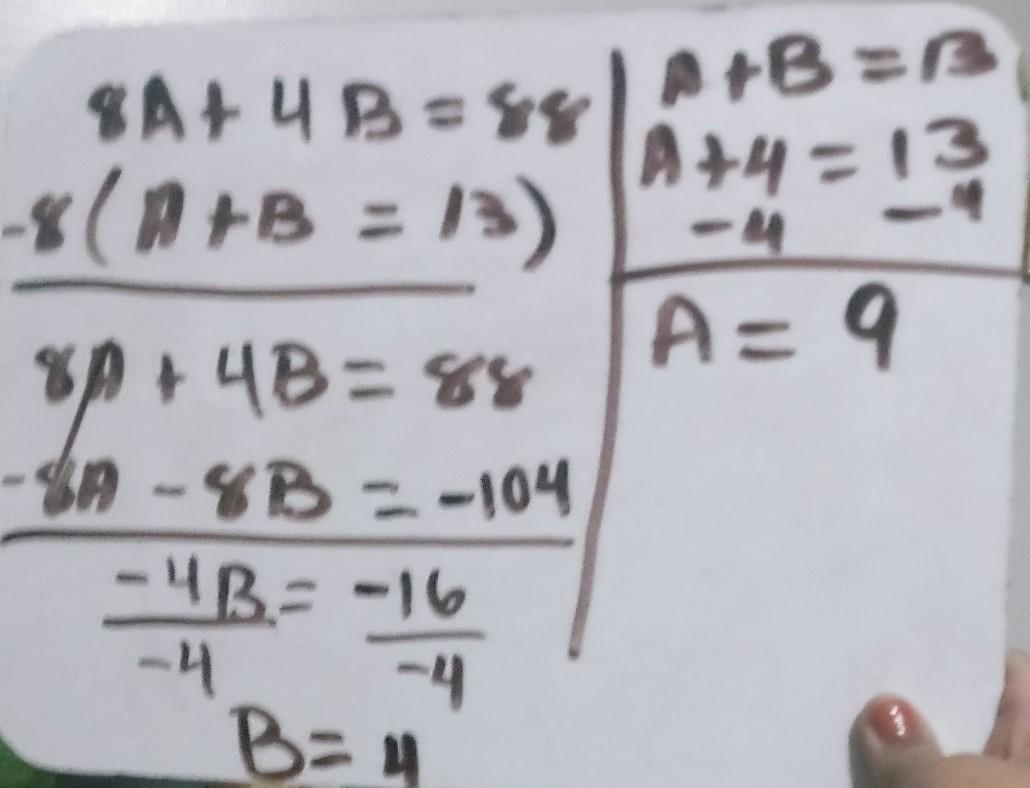 8A + 4B = 88
-8(A + B = 13)
8A + 4B = 88
-8A - 8B = -104
-4B = -16
-4 -4
B = 4
A + B = 13
A + 4 = 13
-4 -4
A = 9